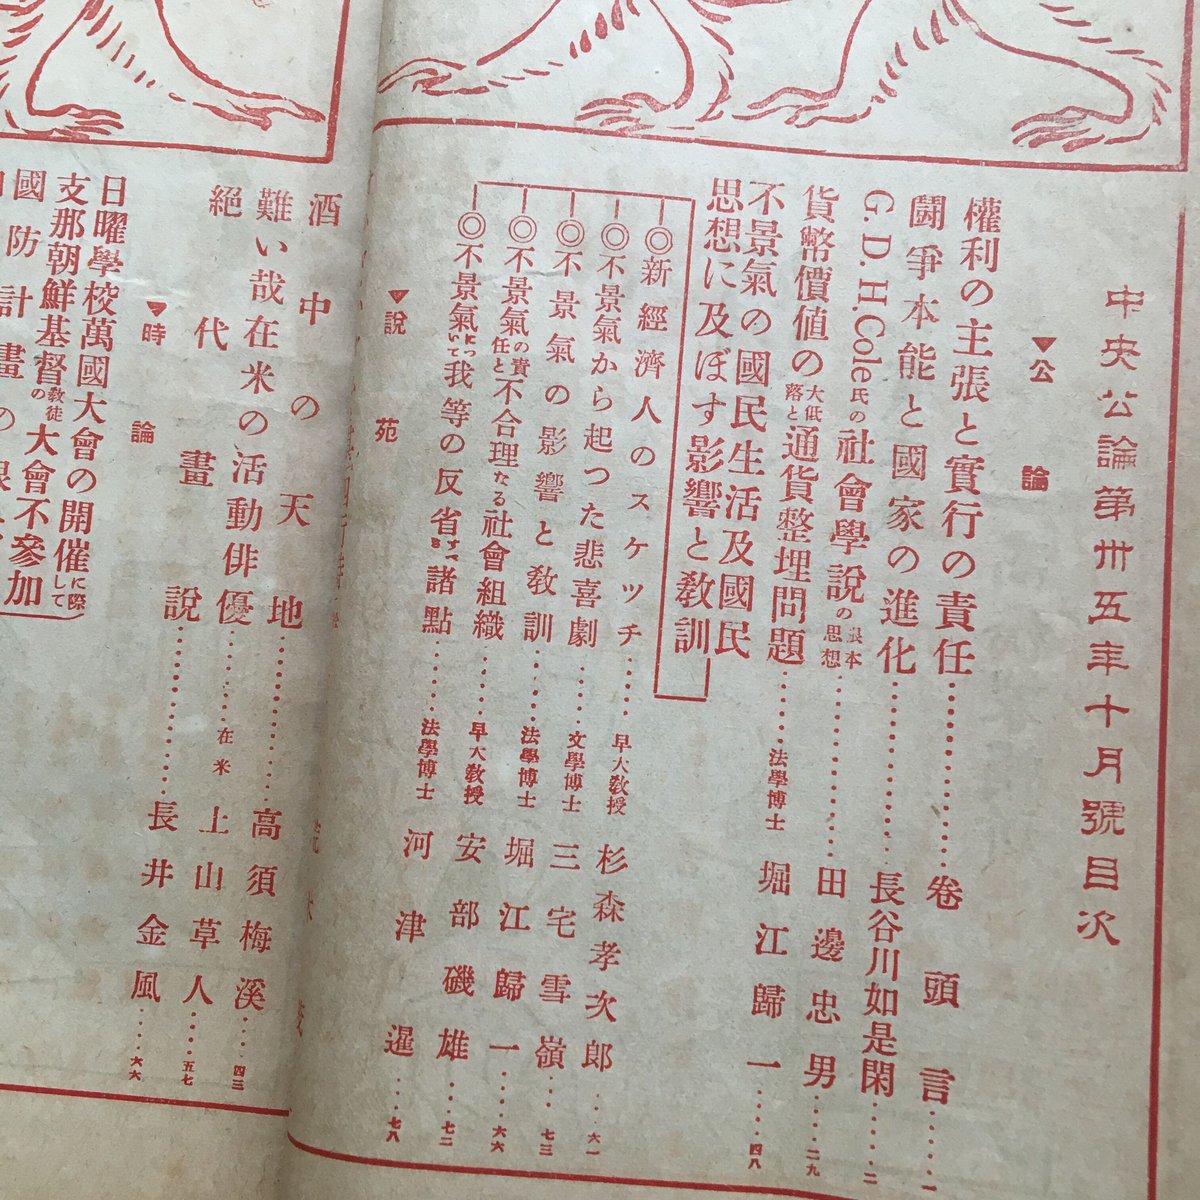 中央公論第卅五年十月號目次
▼公論
權利の主張と實行の責任……卷頭言……一
鬪爭本能と國家の進化……長谷川如是閑……二
G.D.H.Cole氏の社會學說の根本思想……田邊忠男……二九
貨幣價値の大低落と通貨整理問題……法學博士 堀江歸一……四八
不景氣の國民生活及國民
思想に及ぼす影響と敎訓
◎新經濟人のスケッチ……早大敎授 杉森孝次郎……六一
◎不景氣から起つた悲喜劇……文學博士 三宅雪嶺……七三
◎不景氣の影響と敎訓……法學博士 堀江歸一……六六
◎不景氣の責任と不合理なる社會組織……早大敎授 安部磯雄……七二
◎不景氣について我等の反省すべき諸點……法學博士 河津暹……七八
▼說苑
酒中の天地……高須梅溪……四三
難い哉在米の活動俳優……在米 上山草人……五七
絕代畫說……長井金風……六六
▼時論
日曜學校萬國大會の開催に際して
支那朝鮮基督敎徒の大會不參加
國防計畫の